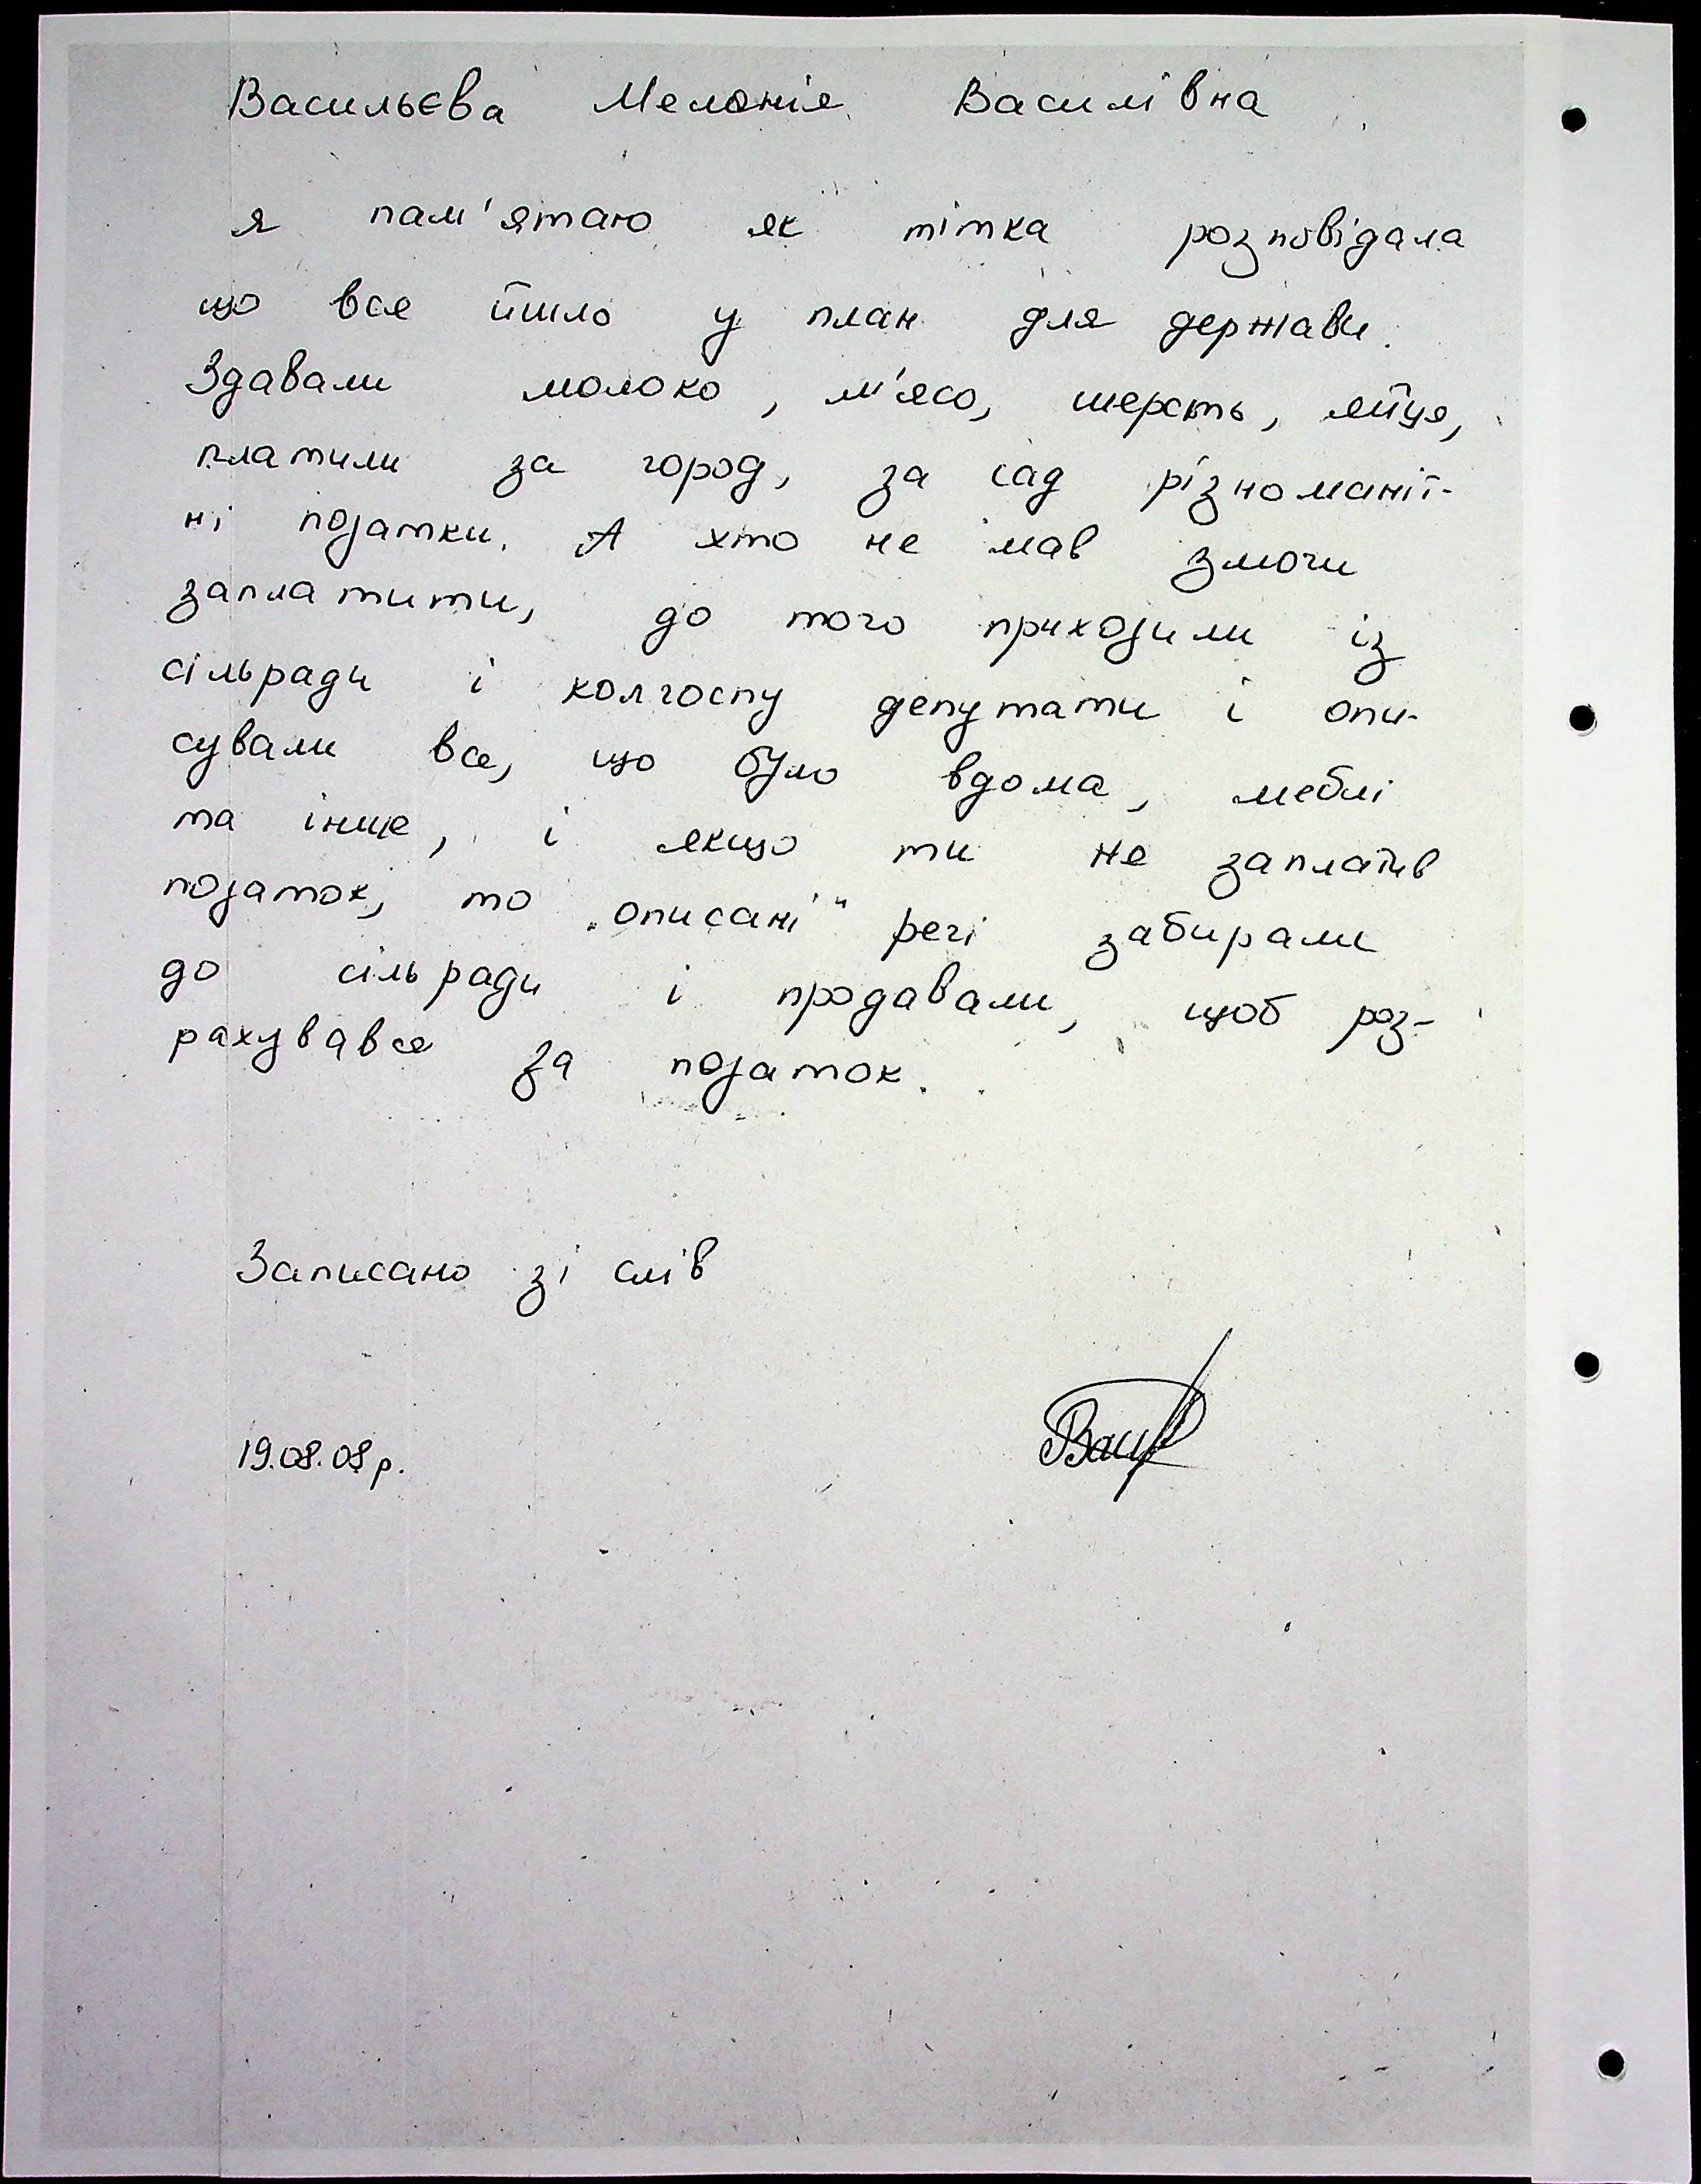 Васильєва Мелонія Василівна
я пам'ятаю як тітка розповідала
що все йшло у план для держави.
Здавали молоко, м'ясо, шерсть, яйця,
платили за город, за сад різноманіт-
ні податки. А хто не мав змоги
заплатити, до того приходили із
сільради і колгоспу депутати і опи-
сували все, що було вдома, меблі
та інше, і якщо ти не заплатив
податок, то „описані“ речі забирали
до сільради і продавали, щоб роз-
рахувався за податок.
Записано зі слів
19.08.08р.